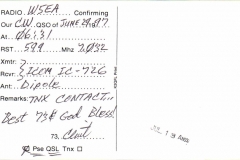 RADIO W5EA Confirming
Our C.W. QSO of JUNE 29, 97.
At 0613:1
RST 599 Mhz 7.032
Xmtr:
Rcvr: ICOM IC-726
Ant: Dipole
Remarks: TNX CONTACT...
Best 73 & God Bless!
73, Clint
Pse QSL Tnx